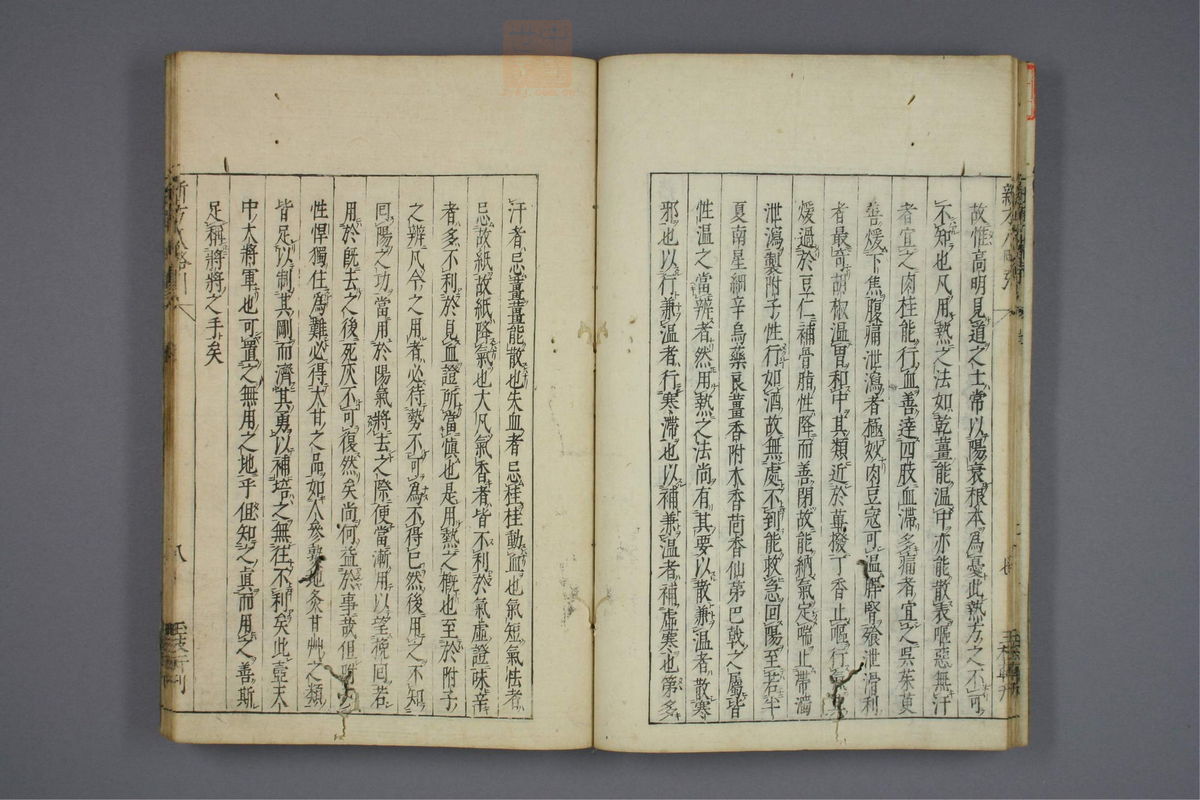 故惟高明見道之士常以陽衰根本為憂此熱方之不可
不知也凡用熱之法如乾薑能溫中亦能散表嘔惡無汗
者宜之肉桂能行血善達四肢血滯多痛者宜之吳茱萸
善煖下焦腹痛泄瀉者極妙肉豆寇可溫脾腎飱泄滑利
者最奇胡椒溫胃和中其類近於蓽撥丁香止嘔行
煖過於豆仁補骨脂性降而善閉故能納氣定喘止帶濁
泄瀉製附子性行如酒故無處不到能救急回陽至若半
夏南星細辛烏藥良薑香附木香茴香仙茅巴戟之屬皆
性溫之當辨者然用熱之法尚有其要以散兼溫者散寒
邪也以行兼溫者行寒滯也以補兼溫者補虛寒也第多
汗者忌薑薑能散也失血者忌桂桂動血也氣短氣怯者
忌故紙故紙降氣也大凡氣香者皆不利於氣虛證味辛
者多不利於見血證所當慎也是用熱之概也至於附子
之辨凡今之用者必待勢不可為不得已然後用之不知
回陽之功當用於陽氣將去之際便當漸用以望挽回若
用於既去之後死灰不可復然矣尚何益於事哉但附子
性悍獨任為難必得大甘之品如人參熟地炙甘艸之類
皆足以制其剛而濟其勇以補培之無往不利矣此壼天
中大將軍也可置之無用之地乎但知之真而用之善斯
足稱將將之手矣
八